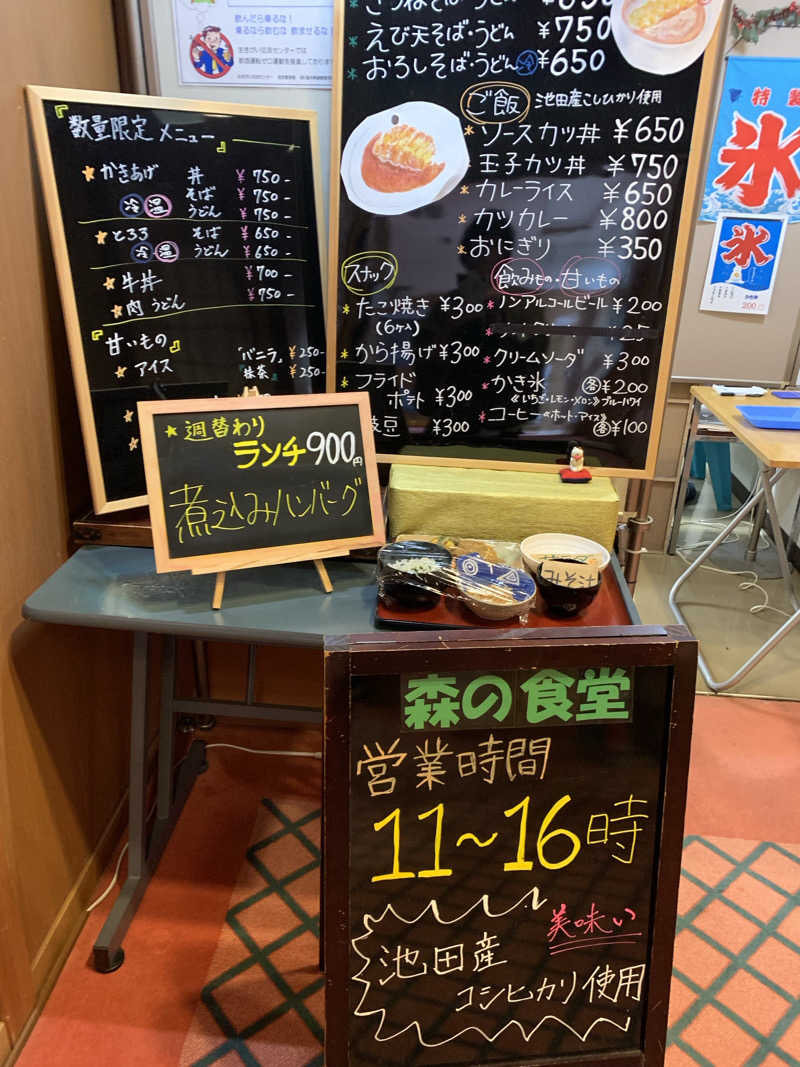 飲んだら乗るな！
乗るなら飲むな 飲ませるな！
『数量限定メニュー』
かきあげ 丼 ¥750-
冷 温 そば ¥750-
うどん ¥750-
とろろ そば ¥650-
冷 温 うどん ¥650-
牛丼 ¥700-
肉うどん ¥750-
『甘いもの』
アイス 「バニラ」 ¥250-
抹茶 ¥250-
えび天そば・うどん ¥750
おろしそば・うどん 冷 ¥650
ご飯 池田産こしひかり使用
ソースカツ丼 ¥650
玉子カツ丼 ¥750
カレーライス ¥650
カツカレー ¥800
おにぎり ¥350
スナック
たこ焼き ¥300
(6ケ入)
から揚げ ¥300
フライド
ポテト ¥300
枝豆 ¥300
飲みもの・甘いもの
ノンアルコールビール ¥200
クリームソーダ ¥300
かき氷 各¥200
《いちご・レモン・メロン》ブルーハワイ
コーヒー《ホット・アイス》
各¥100
特製
氷
氷
200
週替わり
ランチ900円
煮込みハンバーグ
森の食堂
営業時間
11~16時
美味い
池田産
コシヒカリ使用